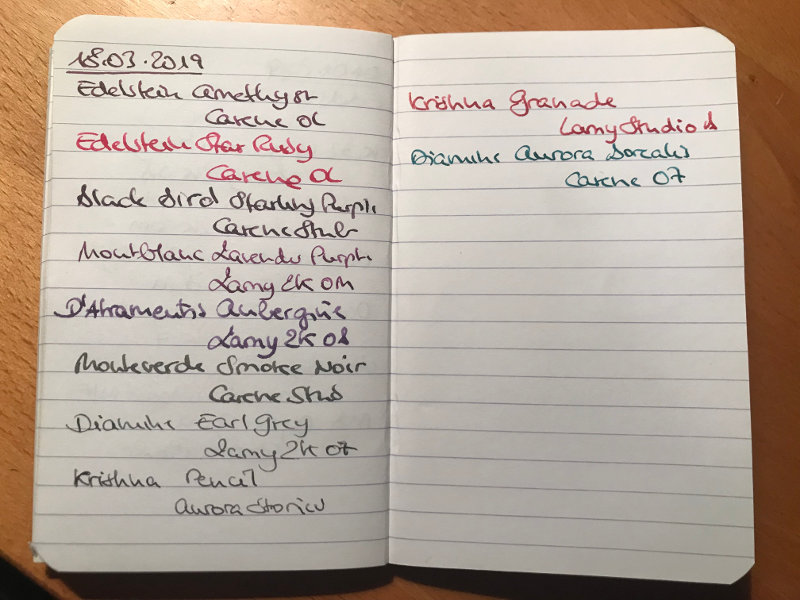 18.03.2019
Edelstein Amethyst
Carene OL
Edelstein Star Ruby
Carene OL
Black Bird Starling Purple
Carene Stub
Montblanc Lavender Purple
Lamy 2K OM
D'Atramentis Aubergine
Lamy 2K OB
Monteverde Smoke Noir
Carene Stub
Diamine Earl Grey
Lamy 2K
Krishna Pencil
Aurora
Krishna Granade
Lamy Studio
Diamine Aurora Borealis
Carene